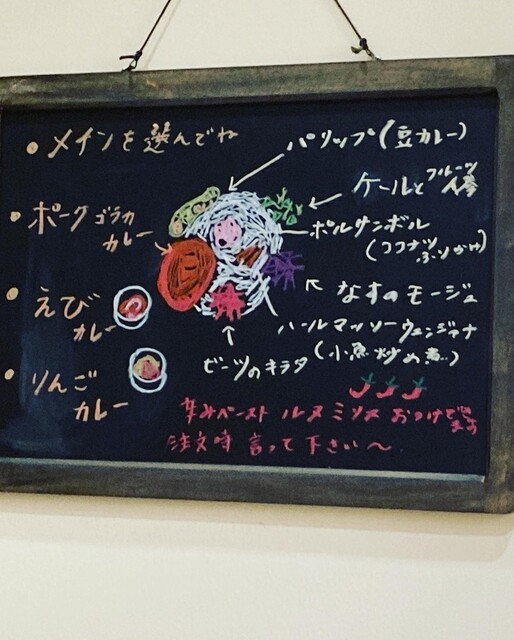 • メインを選んでね
• ポークゴラカ
カレー
• えび
カレー
• りんご
カレー
パリップ(豆カレー)
ケールとフルーツ
ポルサンボル
(ココナツ
ふりかけ)
なすのモージュ
ハールマッソー
(小魚炒め煮)
ビーツのキラタ
辛みペースト ルヌミリス おつけできます
注文時 言って下さい〜